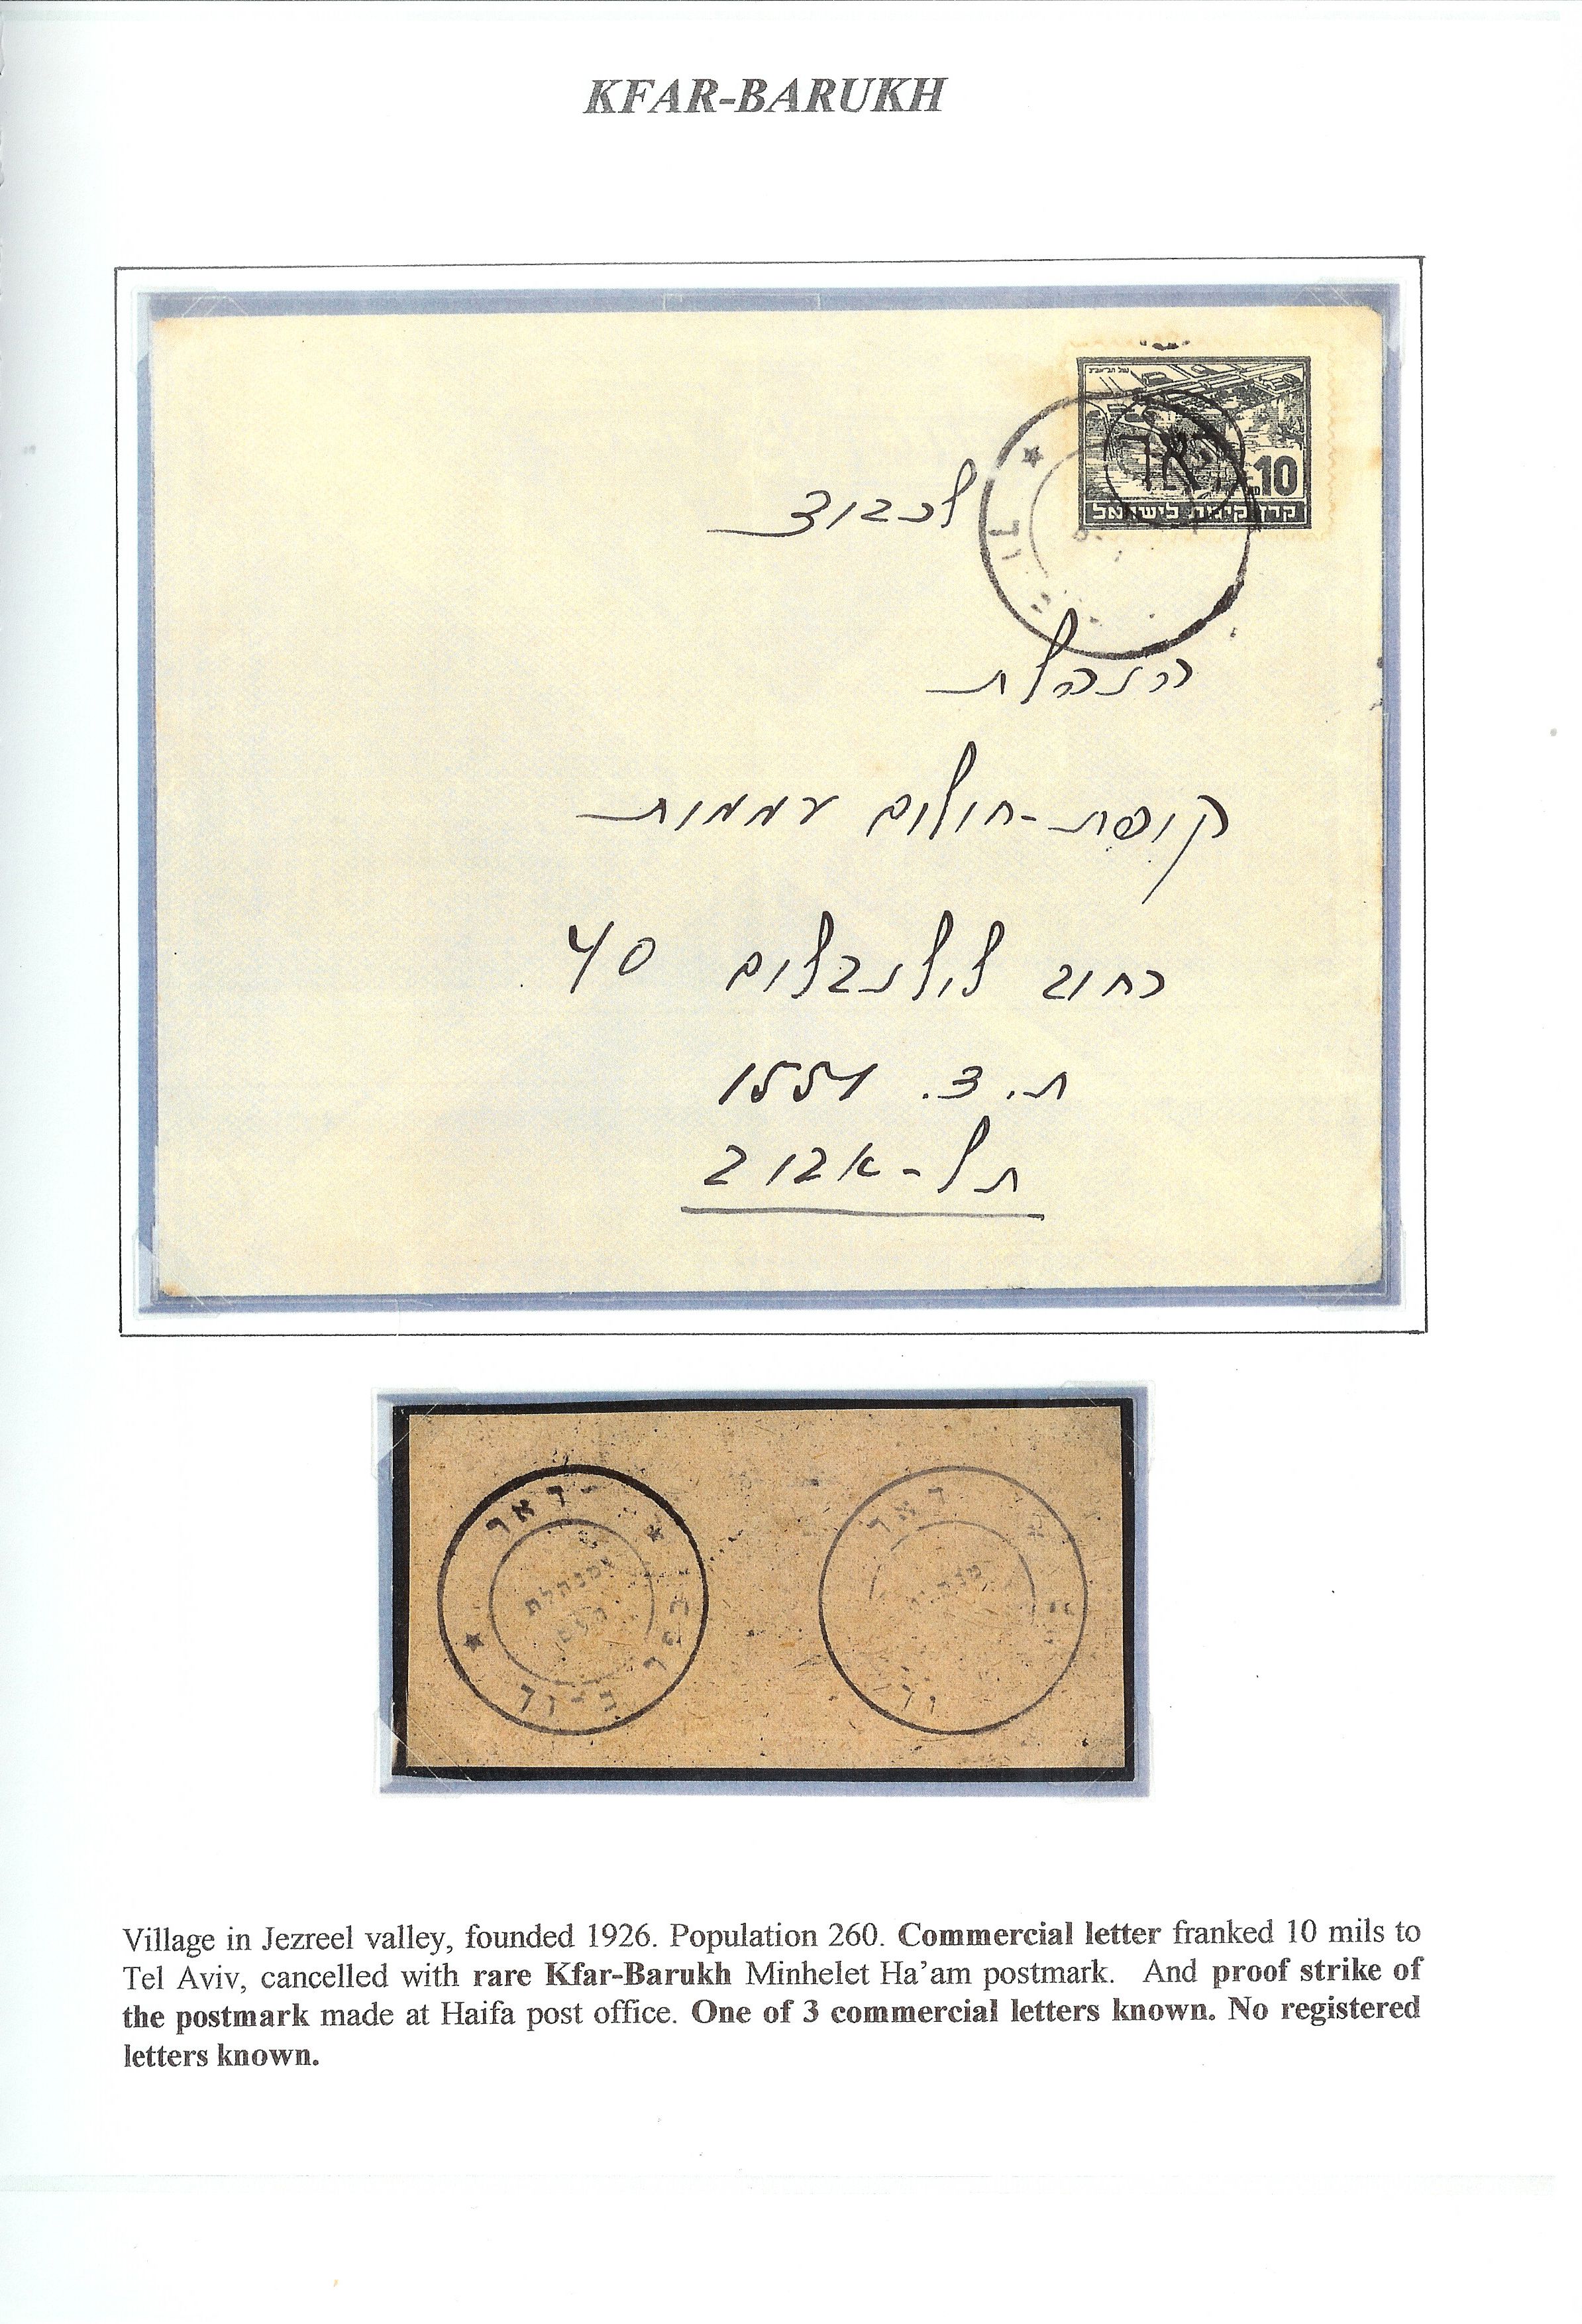 KFAR-BARUKH
נמל תל־אביב
דאר
10
קרן קימת לישראל
לכבוד
הנהלת
קופת-חולים עממית
רחוב לילנבלום 40
ת.ד. 1551
תל-אביב
דאר
מנהלת
העם
דאר
Village in Jezreel valley, founded 1926. Population 260. Commercial letter franked 10 mils to
Tel Aviv, cancelled with rare Kfar-Barukh Minhelet Ha'am postmark. And proof strike of
the postmark made at Haifa post office. One of 3 commercial letters known. No registered
letters known.